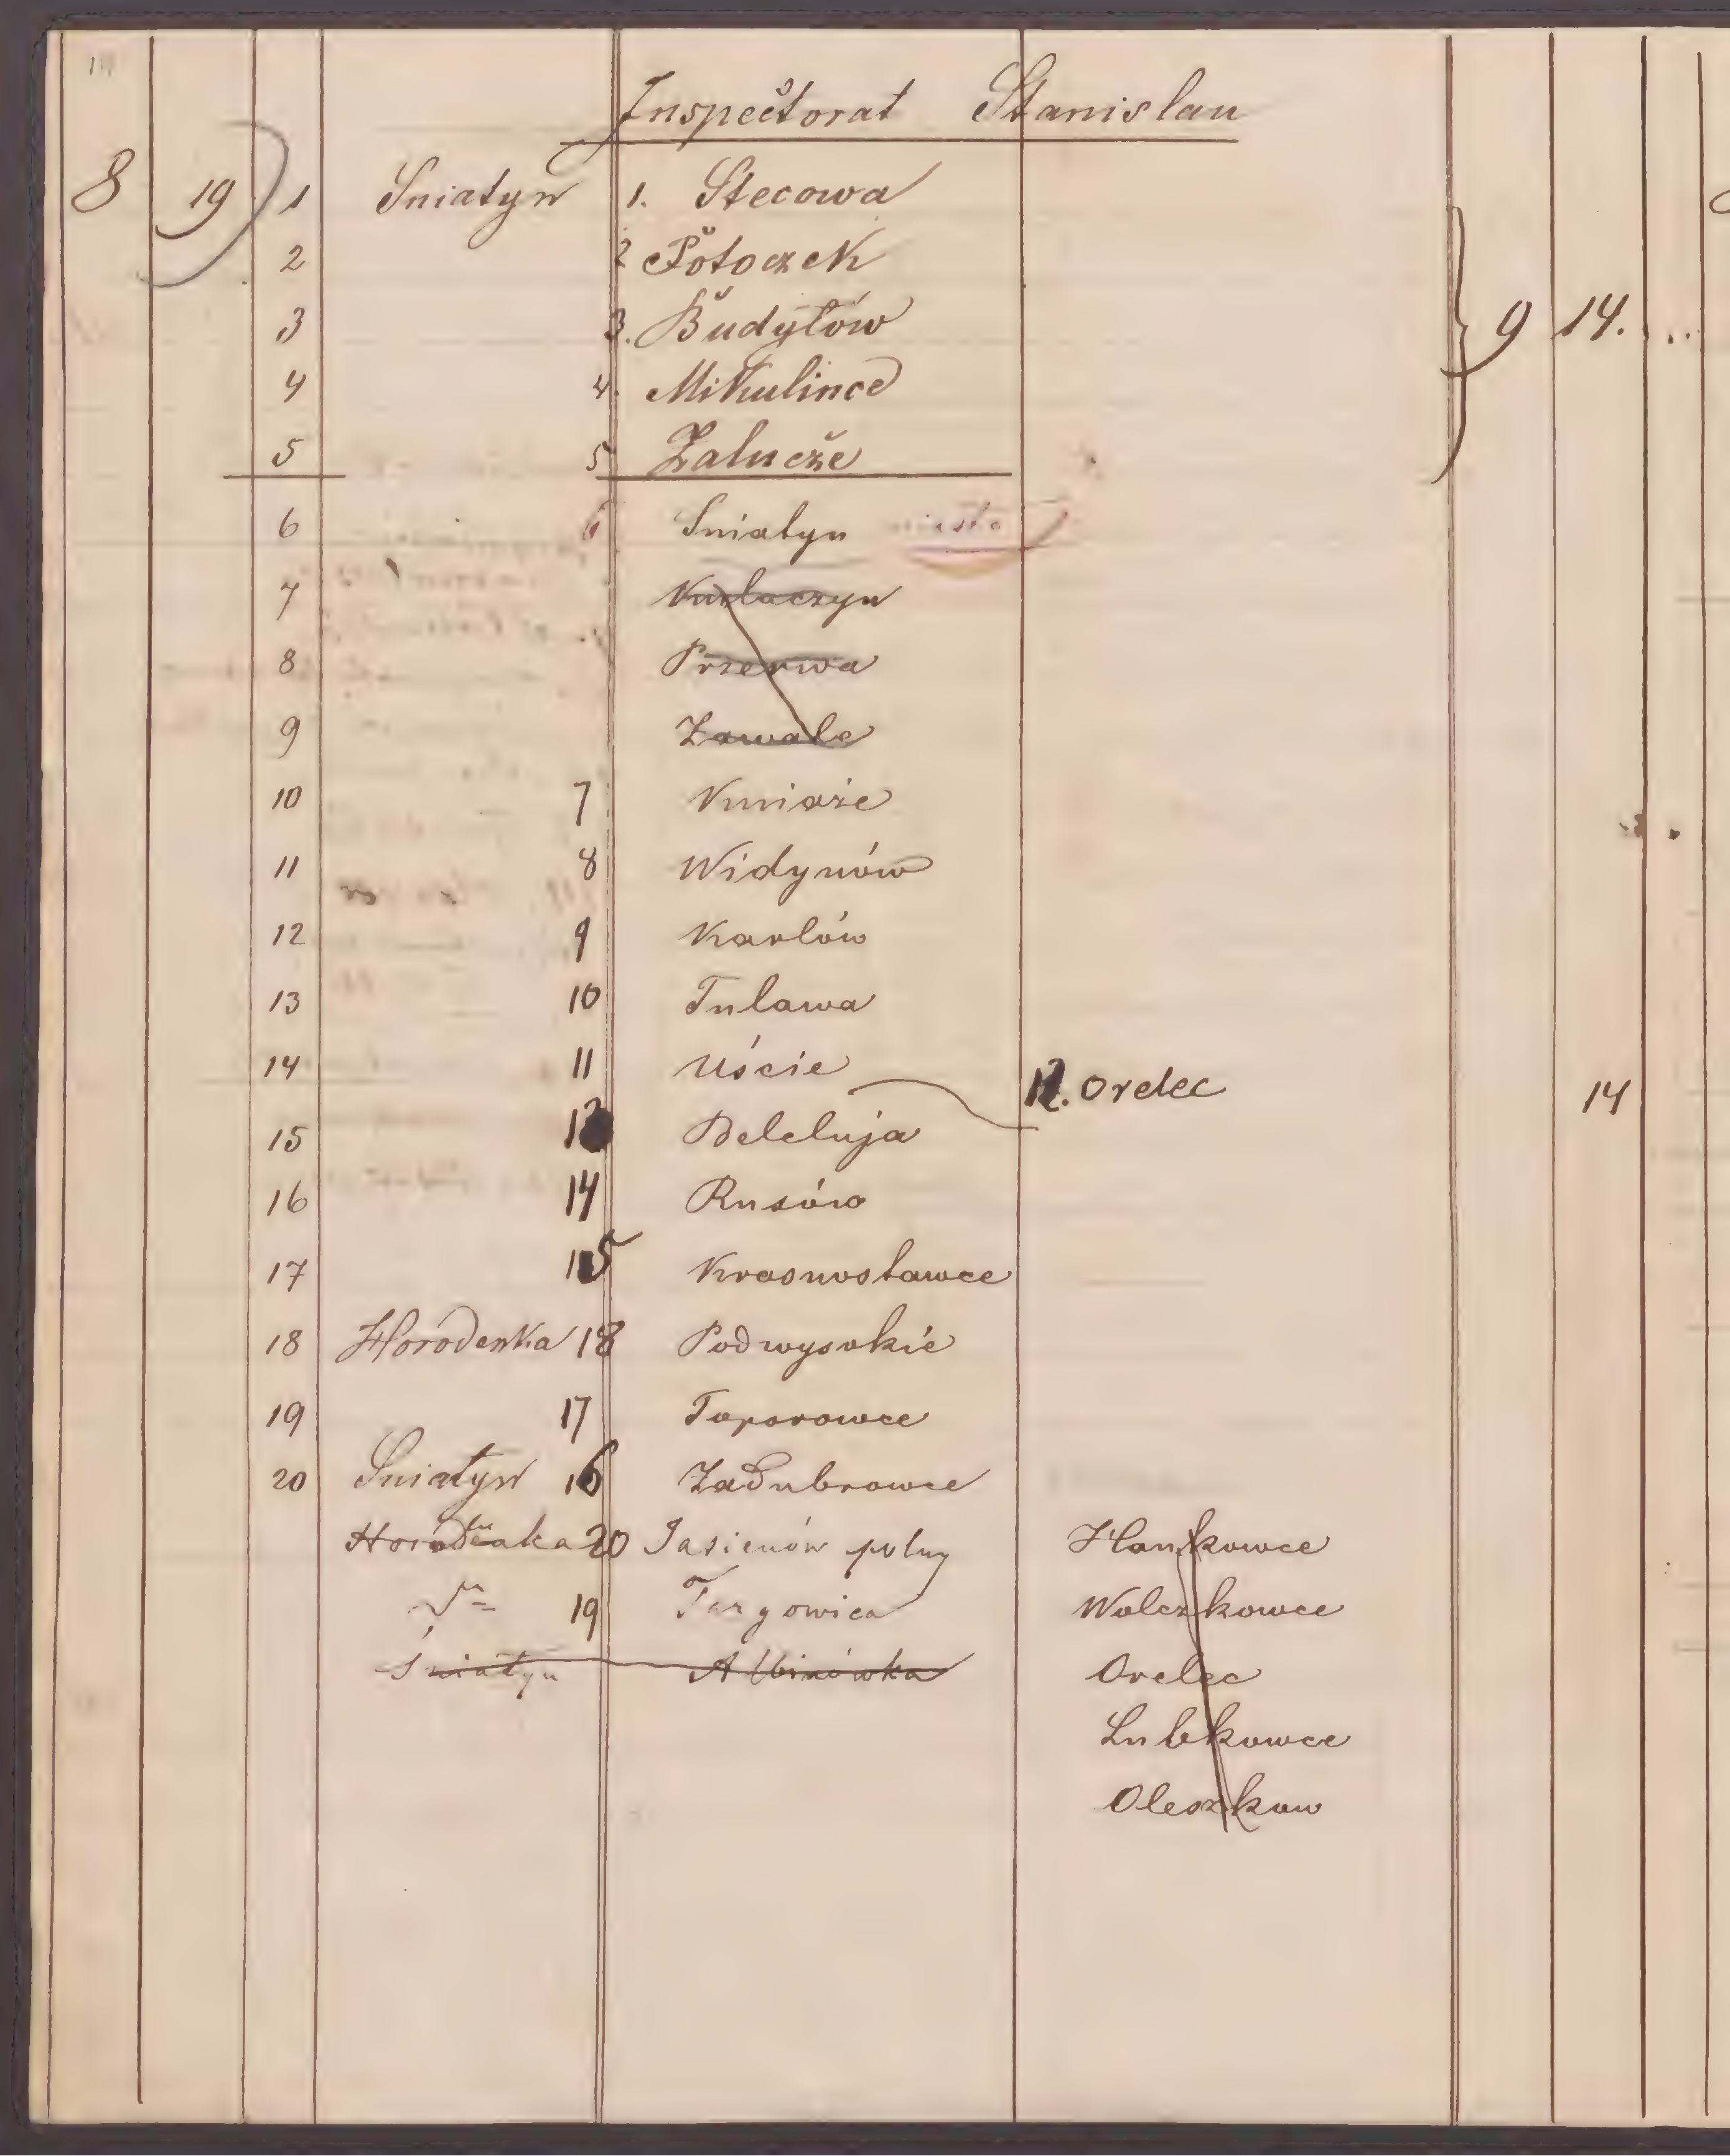 Inspectorat Stanislau
8 19 1 Sniatyn 1. Stecowa
2 2 Potoczek
3 3. Budyłów 9 14.
4 4. Mikulince
5 5 Załucże
6 6 Sniatyn miasto
7
8 Przerwa
9 Zawale
10 7 Kniaże
11 8 Widynów
12 9 Karlów
13 10 Tulawa
14 11 Uście 12. Orelec 14
15 13 Beleluja
16 14 Rusów
17 15 Krasnostawce
18 Horodenka 18 Podwysokie
19 17 Toporowce
20 Sniatyn 16 Zadubrowce
Horodenka 20 Jasienów polny Hankowce
19 Targowica Wolczkowce
Śniatyn Albinówka Orelec
Lubkowce
Oleszkow